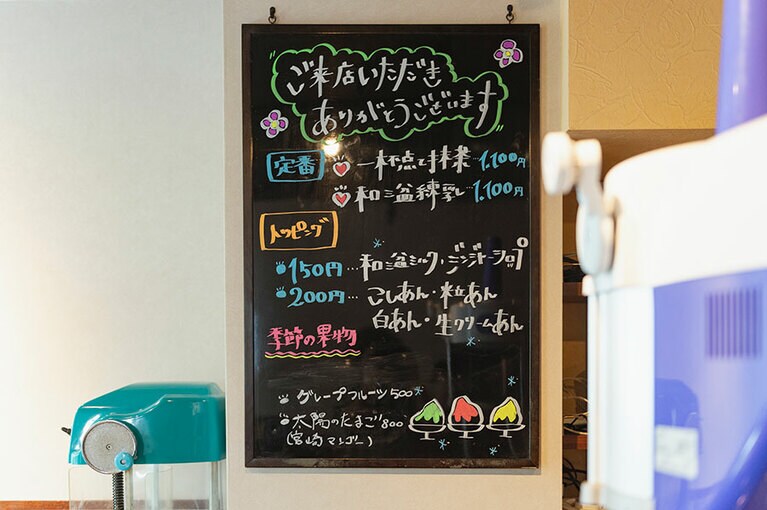 ご来店いただき
ありがとうございます
定番 一杯点て抹茶…1,100円
和三盆練乳…1,100円
トッピング
150円…和三盆ミルク・ジンジャーシロップ
200円…こしあん・粒あん
白あん・生クリームあん
季節の果物
グレープフルーツ500
太陽のたまご800
(宮崎マンゴー)